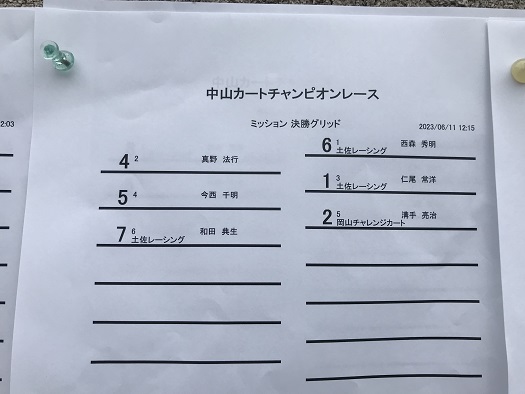 中山カートチャンピオンレース
ミッション 決勝グリッド
2023/06/11 12:15
2:03
6 1 西森 秀明
土佐レーシング
4 2 真野 法行
1 3 仁尾 常洋
土佐レーシング
5 4 今西 千明
2 5 溝手 亮治
岡山チャレンジカート
7 6 和田 典生
土佐レーシング